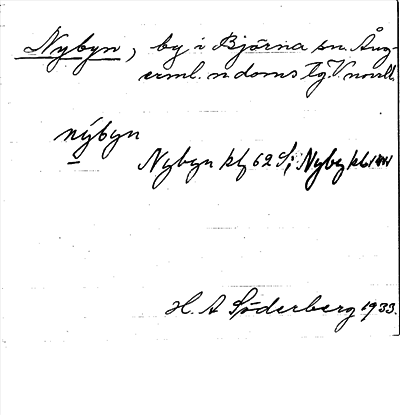 Nybyn, by i Björna sn. Ång-
erml. n. doms lg. V. norrl.
nýbyn
Nybyn kb 62 S; Nyby kb 1
H. A Söderberg 1933.